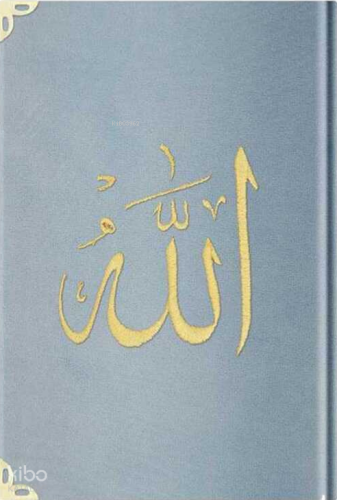 اللهُ
kibo